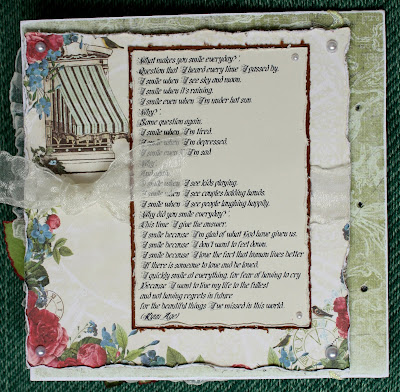 What makes you smile everyday?
Question that I heard every time I passed by.
I smile when I see sky and moon.
I smile when it's raining.
I smile even when I'm under hot sun.
Why?
Same question again.
I smile when I'm tired.
I smile when I'm depressed.
I smile even I'm sad
Why
I smile when I see kids playing.
I smile when I see couples holding hands.
I smile when I see people laughing happily.
Why did you smile everyday?
This time I give the answer.
I smile because I'm glad of what God have given us.
I smile because I don't want to feel down.
I smile because I love the fact that human lives better
If there is someone to love and be loved.
I quickly smile at everything, for fear of having to cry.
Because I want to live my life to the fullest
and not having regrets in future
for the beautiful things I've missed in this world.